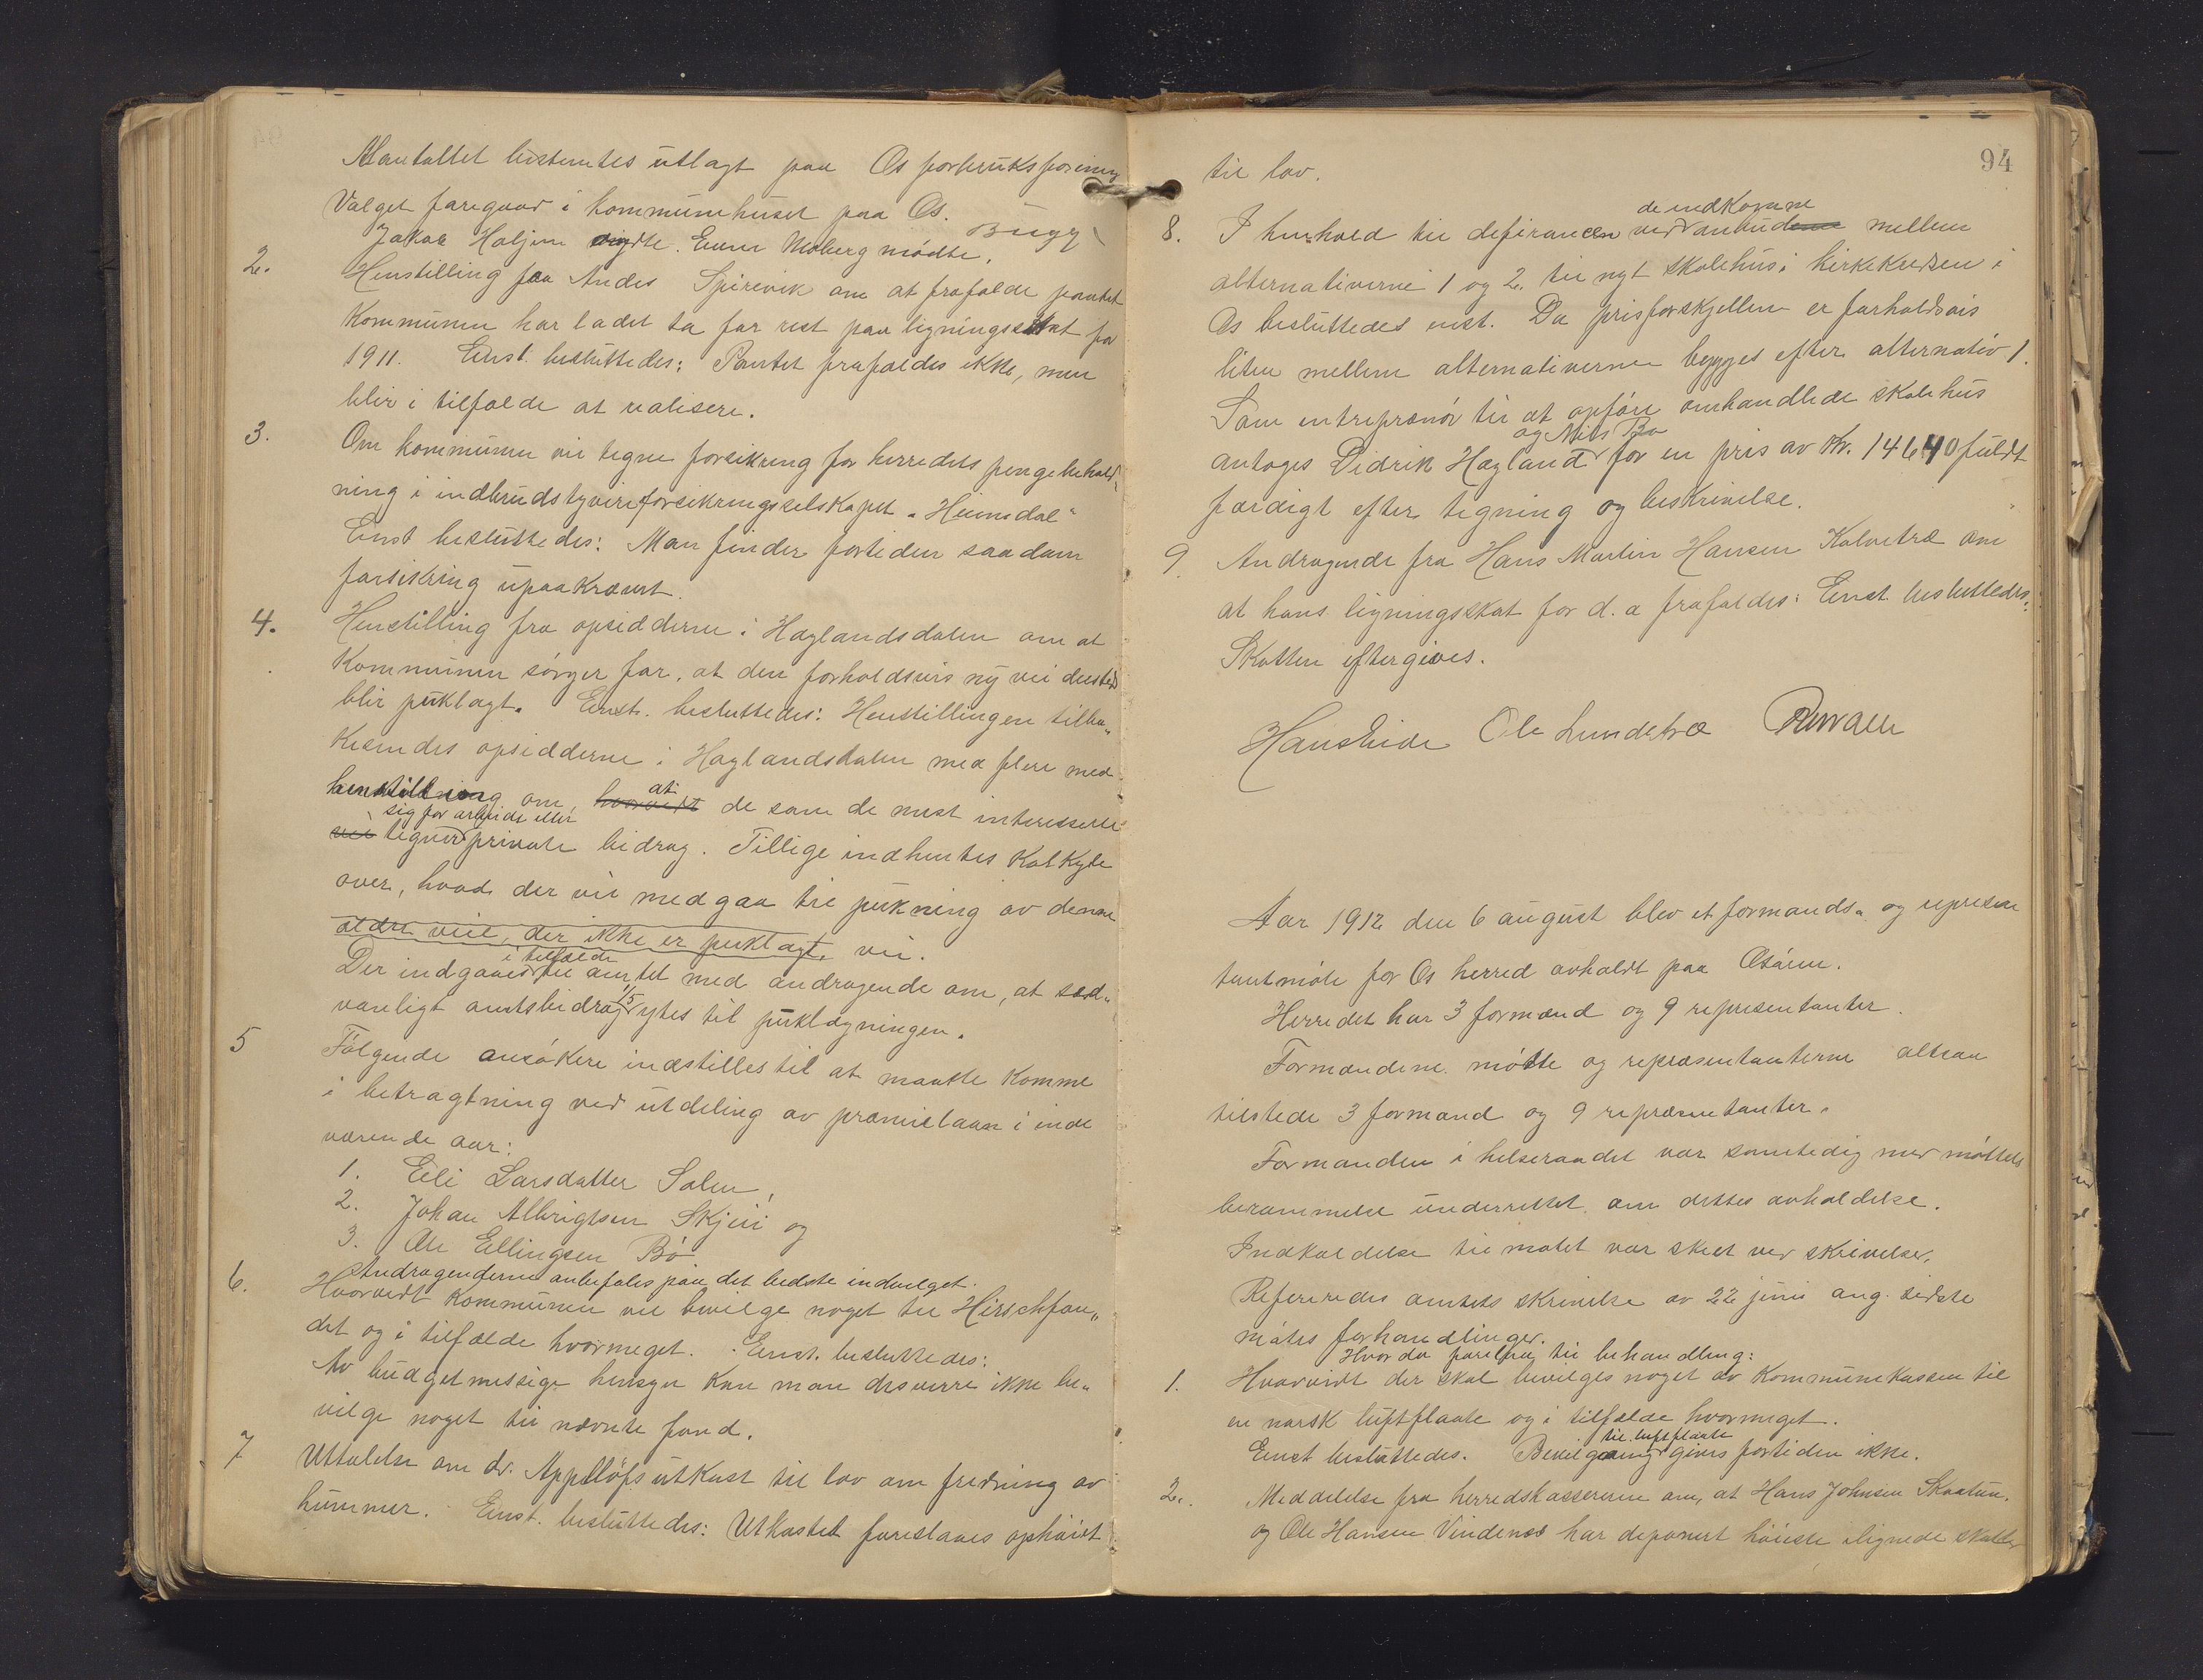 Mantallet bestemtes utlagt paa Os forbruksforening
Valget foregaar i kommunehuset paa Os.
Jakob Haljem Einer Moberg mødte.
2. Henstilling fra Andes Spirevik om at frafalde pantet
kommunen har ladet ta for rest paa ligningsskat for
1911. Enst. besluttedes: Pantet frafaldes ikke, men
blir i tilfælde at realisere.
3. Om kommunen vil tegne forsikring for herredets pengebehold-
ning i indbrudstyveriforsikringsselskapet "Heimdal"
Enst besluttedes: Man finder fortiden saadan
forsikring upaakrævet.
4. Henstilling fra opsidderne i Haglandsdalen om at
kommunen sørger for, at den forholdsvis ny vei dersteds
blir puklagt. Enst. besluttedes: Henstillingen tilba-
kesendes opsidderne i Haglandsdalen med flere med
henstilling om, hvorvidt at de som de mest interesserte
vil tegner sig for arbeide eller private bidrag. Tillige indhentes kalkyle
over, hvad der vil medgaa til pukning av denne
ældre veie, der ikke er puklagt. vei.
Der indgaaes i tilfælde til amtet med andragende om, at sæd-
vanligt amtsbidrag 1/5 ytes til puklægningen.
5 Følgende ansøkere indstilles til at maatte komme
i betragtning ved utdeling av præmielaan i inde
værende aar:
1. Eili Larsdatter Salen,
2. Johan Albrigtsen Skjeii og
3. Ole Ellingsen Bø
Andragenderne anbefales paa det bedste indvilget.
6. Hvorvidt kommunen vil bevilge noget til Hirschfon-
det og i tilfælde hvormeget. Enst. besluttedes:
Av budgetmessige hensyn kan man desverre ikke be-
vilge noget til nævnte fond.
7 Uttalelse om dr. Appelløfs utkast til lov om fredning av
hummer. Enst. besluttedes: Utkastet foreslaaes ophøiet
94
til lov.
8. I henhold til differancen ved de indkomne anbudene mellem
alternativerne 1 og 2. til nyt skolehus i kirkekredsen i
Os besluttedes enst. Da prisforskjellen er forholdsvis
liten mellem alternativerne bygges efter alternativ 1.
Som entreprenør til at opføre omhandlede skolehus
antoges Didrik Hagland og Nils Bø for en pris av Kr. 14640 fuldt
færdigt efter tegning og beskrivelse.
9. Andragende fra Hans Martin Hansen Kalvetræ om
at hans ligningsskat for d.a frafaldes: Enst. besluttedes:
Skatten eftergives.
Hans Lide Ole Lundetræ
Aar 1912 den 6 august blev et formands- og represen
tantmøte for Os herred avholdt paa Osøren.
Herredet har 3 formænd og 9 representanter.
Formændene møtte og repræsentanterne altsaa
tilstede 3 formænd og 9 repræsentanter.
Formanden i helseraadet var samtidig med møttets
berammelse underrettet om dettes avholdelse.
Indkaldelse til møtet var skeet ved skrivelse.
Refereredes amtets skrivelse av 22 juni ang. sidste
møtes forhandlinger.
Hvor da forelaa til behandling:
1. Hvorvidt der skal bevilges noget av kommunekassen til
en norsk luftflaate og i tilfælde hvormeget.
Enst besluttedes. Bevilgning til luftflaate gives fortiden ikke.
2. Meddelelse fra herredskassereren om, at Hans Johnsen Skaatun.
og Ole Hansen Vindenes har deponert høieste ilignede skatter